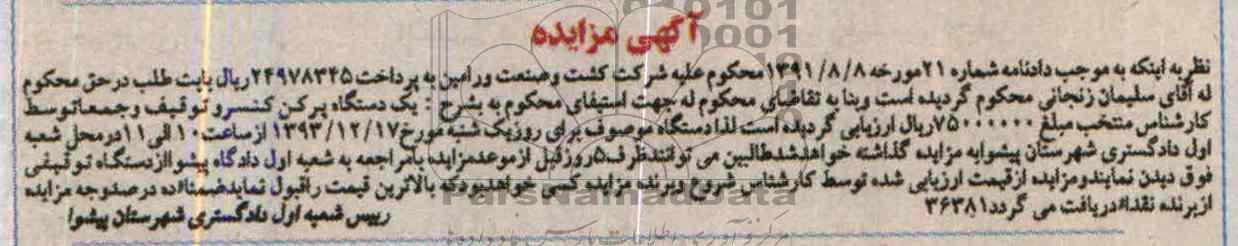 آگهی مزایده
نظر به اینکه به موجب دادنامه شماره ۲۱مورخه ۱۳۹۱/۸/۸محکوم علیه شرکت کشت وصنعت ورامین به پرداخت۲۴۹۷۸۳۴۵ریال بابت طلب درحق محکوم
له آقای سلیمان زنجانی محکوم گردیده است وبنا به تقاضای محکوم له جهت استیفای محکوم به بشرح : یک دستگاه پرکن کنسرو توقیف وجمعاتوسط
کارشناس منتخب مبلغ ۷۵۰۰۰۰۰۰ریال ارزیابی گردیده است لذادستگاه موصوف برای روزیک شنبه مورخ۱۳۹۳/۱۲/۱۷ ازساعت۱۰ الی۱۱درمحل شعبه
اول دادگستری شهرستان پیشوابه مزایده گذاشته خواهدشدطالبین می توانندظرف۵روزقبل ازموعدمزایده بامراجعه به شعبه اول دادگاه پیشواازدستگاه توقیفی
فوق دیدن نمایندومزایده ازقیمت ارزیابی شده توسط کارشناس شروع وبرنده مزایده کسی خواهدبودکه بالاترین قیمت راقبول نمایدضمنا#ده درصدوجه مزایده
ازبرنده نقدا#دریافت می گردد۳۶۳۸۱
رییس شعبه اول دادگستری شهرستان پیشوا
ParsNamadData